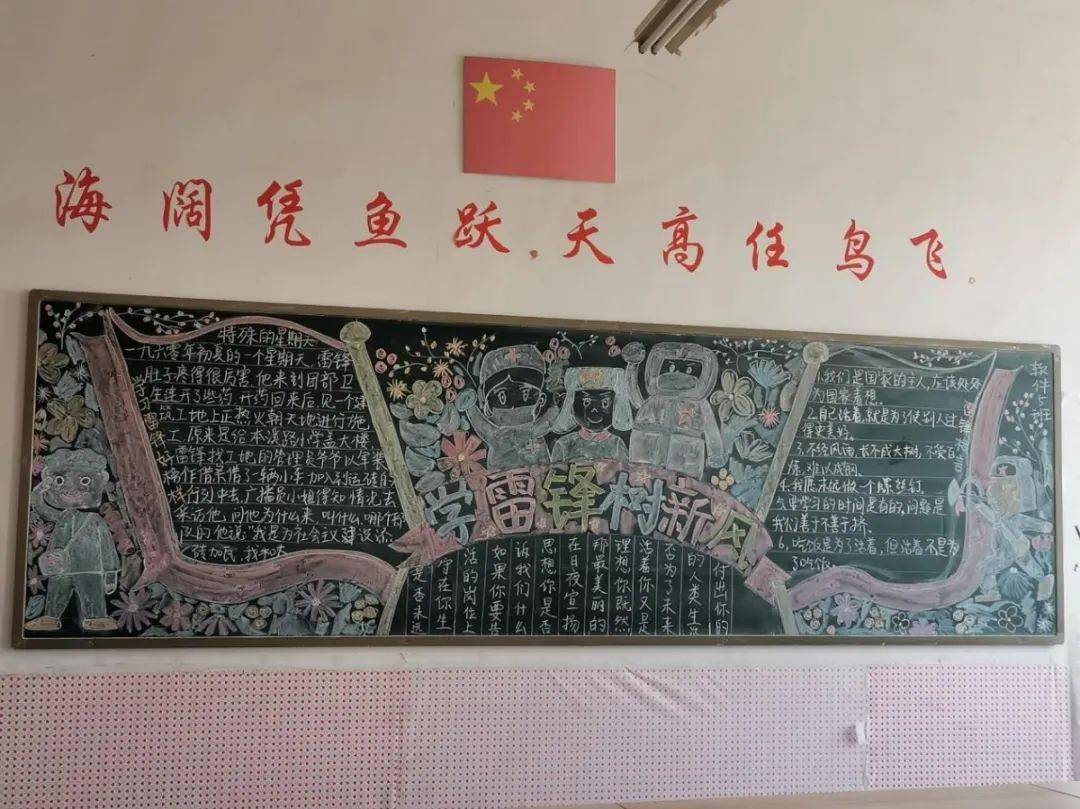 海阔凭鱼跃,天高任鸟飞。
特殊的星期天
一九六零年初夏的一个星期天,雷锋
肚子疼得很厉害,他来到团部卫
生连开了些药,开药回来后见一个建
筑工地上正热火朝天地进行施
工,原来是给本溪路小学盖大楼
雷锋找工地的管理员
借来了一辆小车加入到运砖的
行列中去,广播员小姐得知情况去
采访他,问他为什么来,叫什么,哪个部
队的他说:我是为社会主义建设添
砖加瓦,我和大
学雷锋树新风
付出你的
的人类生活
否为了未来
活着你又是
理想你既然
那最美丽的
在日夜宣扬
思想你是否
诉我们什么
如果你要告
活的岗位上
守在你生
是否永远
软件5班
1.我们是国家的主人,应该处处
为国家着想。
2.自己活着,就是为了使别人过
得更美好。
3.不经风雨,长不成大树,不受百
炼,难以成钢。
4.我愿永远做一个螺丝钉。
5.要学习的时间是有的,问题是
我们善不善于挤。
6.吃饭是为了活着,但活着不是为
了吃饭。